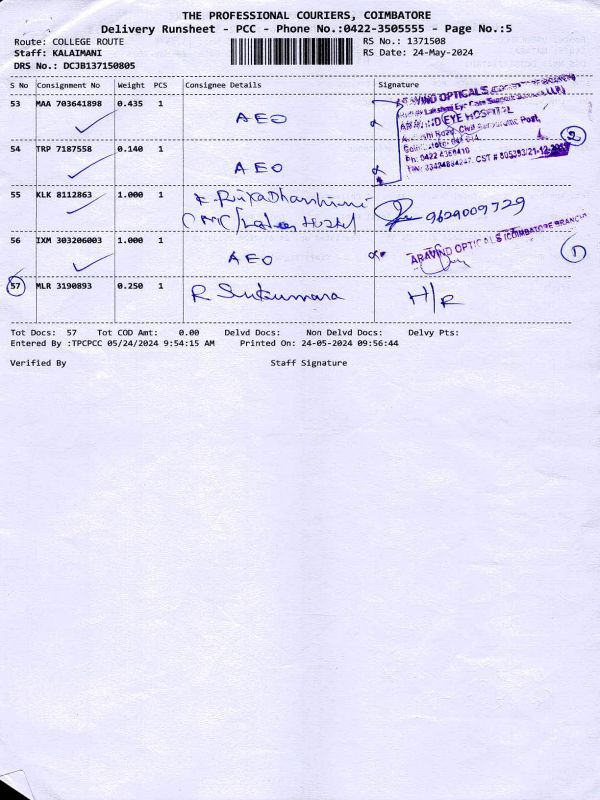 THE PROFESSIONAL COURIERS, COIMBATORE
Delivery Runsheet - PCC - Phone No.:0422-3505555 - Page No.:5
Route: COLLEGE ROUTE RS No.: 1371508
Staff: KALAIMANI RS Date: 24-May-2024
DRS No.: DCJB137150805
S No Consignment No Weight PCS Consignee Details Signature
53 MAA 703641898 0.435 1 AEO
ARAVIND OPTICALS
Lakshmi Eye Care
EYE HOSPITAL
Civil Aerodrome Post,
Ph: 0422 4360410
2
54 TRP 7187558 0.140 1 AEO
55 KLK 8112863 1.000 1
CMC Hostel 9629009729
56 IXM 303206003 1.000 1 AEO
ARAVIND OPTICALS (COIMBATORE BRANCH)
1
57 MLR 3190893 0.250 1 R Sukumara H/R
Tot Docs: 57 Tot COD Amt: 0.00 Delvd Docs: Non Delvd Docs: Delvy Pts:
Entered By :TPCPCC 05/24/2024 9:54:15 AM Printed On: 24-05-2024 09:56:44
Verified By Staff Signature